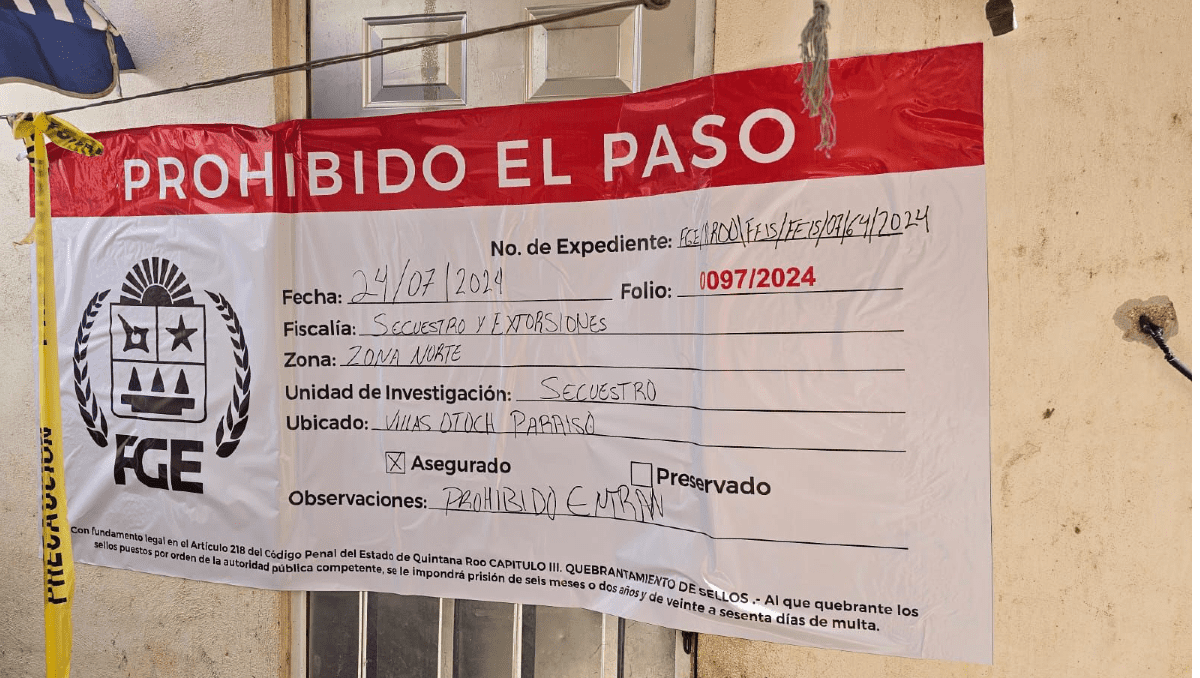 PROHIBIDO EL PASO
No. de Expediente: FGE/QROO/FEIS/FEIS/07/64/2024
Fecha: 24/07/2024 Folio: 0097/2024
Fiscalía: SECUESTRO Y EXTORSIONES
Zona: ZONA NORTE
Unidad de Investigación: SECUESTRO
Ubicado: VILLAS OTOCH PARAISO
FGE
X Asegurado Preservado
Observaciones: PROHIBIDO ENTRAR
Con fundamento legal en el Artículo 218 del Código Penal del Estado de Quintana Roo CAPITULO III. QUEBRANTAMIENTO DE SELLOS .- Al que quebrante los
sellos puestos por orden de la autoridad pública competente, se le impondrá prisión de seis meses o dos años y de veinte a sesenta días de multa.
PRECAUCIÓN